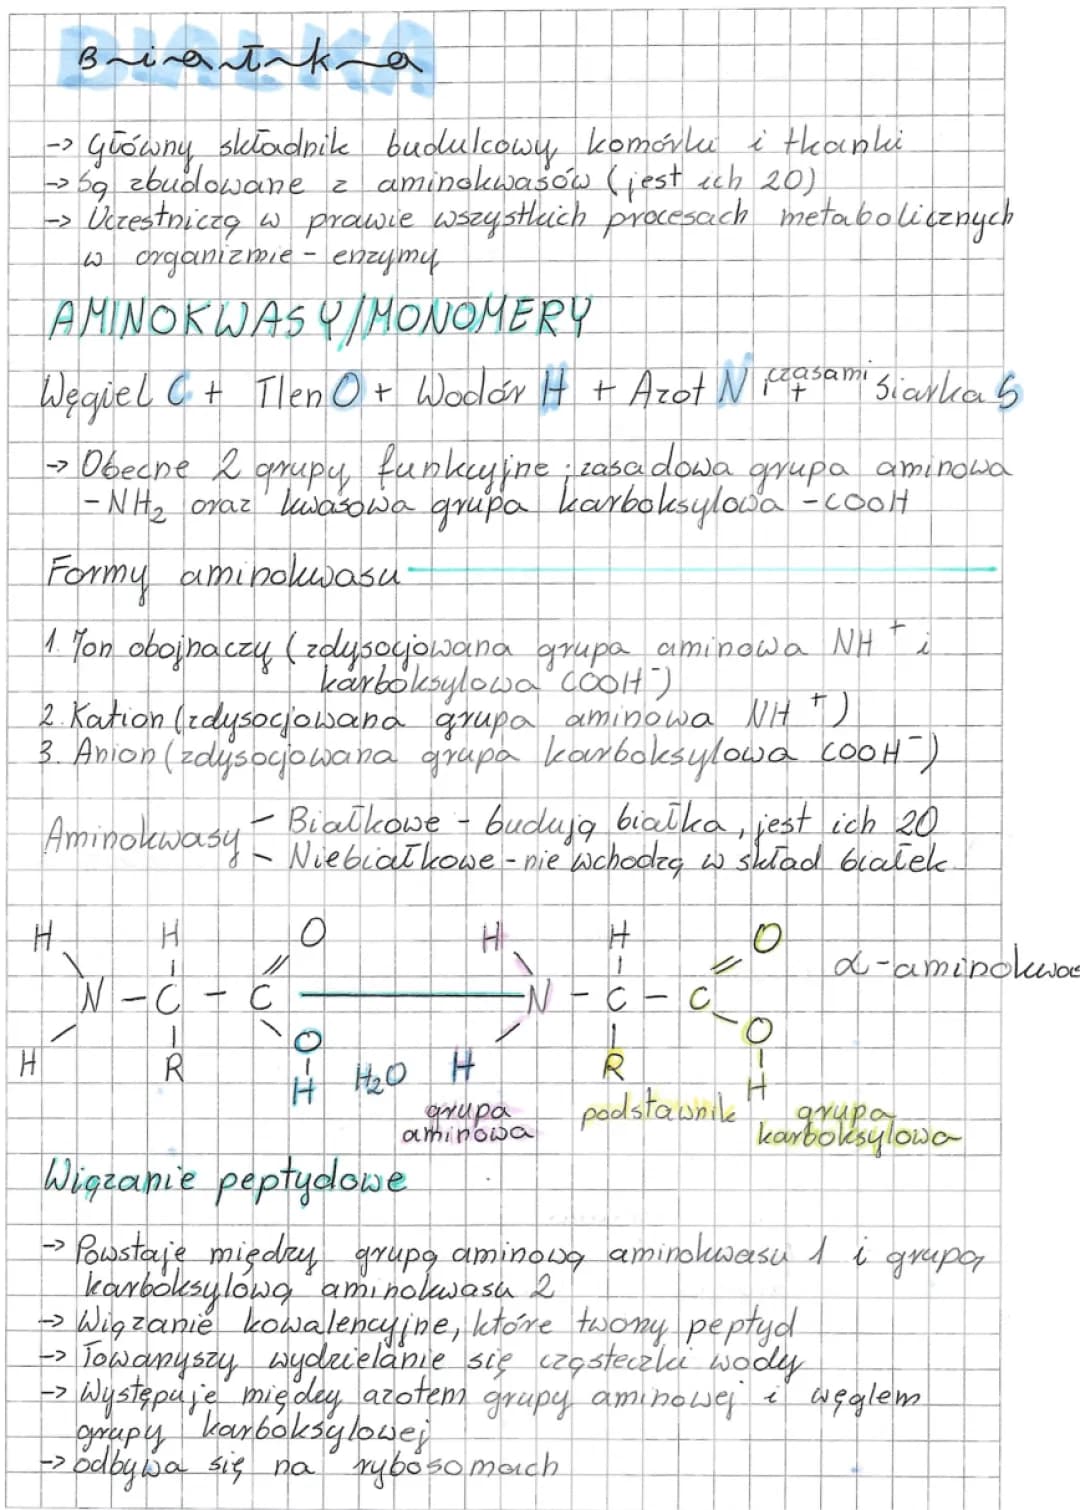 Białka
-> Główny składnik budulcowy komórki i tkanki
-> Są zbudowane z aminokwasów (jest ich 20)
-> Uczestniczą w prawie wszystkich procesach metabolicznych
w organizmie - enzymy
AMINOKWASY/MONOMERY
Węgiel C + Tlen O + Wodór H + Azot N, czasami + Siarka S
-> Obecne 2 grupy funkcyjne: zasadowa grupa aminowa
- NH₂ oraz kwasowa grupa karboksylowa - COOH
Formy aminokwasu
1. Jon obojnaczy (zdysocjowana grupa aminowa NH⁺ i
karboksylowa COOH⁻)
2. Kation (zdysocjowana grupa aminowa NH⁺)
3. Anion (zdysocjowana grupa karboksylowa COOH⁻)
Aminokwasy
- Białkowe - budują białka, jest ich 20
- Niebiałkowe - nie wchodzą w skład białek
H H O H H O
α-aminokwas
N - C - C N - C - C
O O
H R H H₂O H R H
grupa aminowa
podstawnik
grupa karboksylowa
Wiązanie peptydowe
-> Powstaje między grupą aminową aminokwasu 1 i grupą
karboksylową aminokwasu 2
-> Wiązanie kowalencyjne, które tworzy peptyd
-> Towarzyszy wydzielanie się cząsteczki wody
-> Występuje między azotem grupy aminowej i węglem
grupy karboksylowej
-> odbywa się na rybosomach